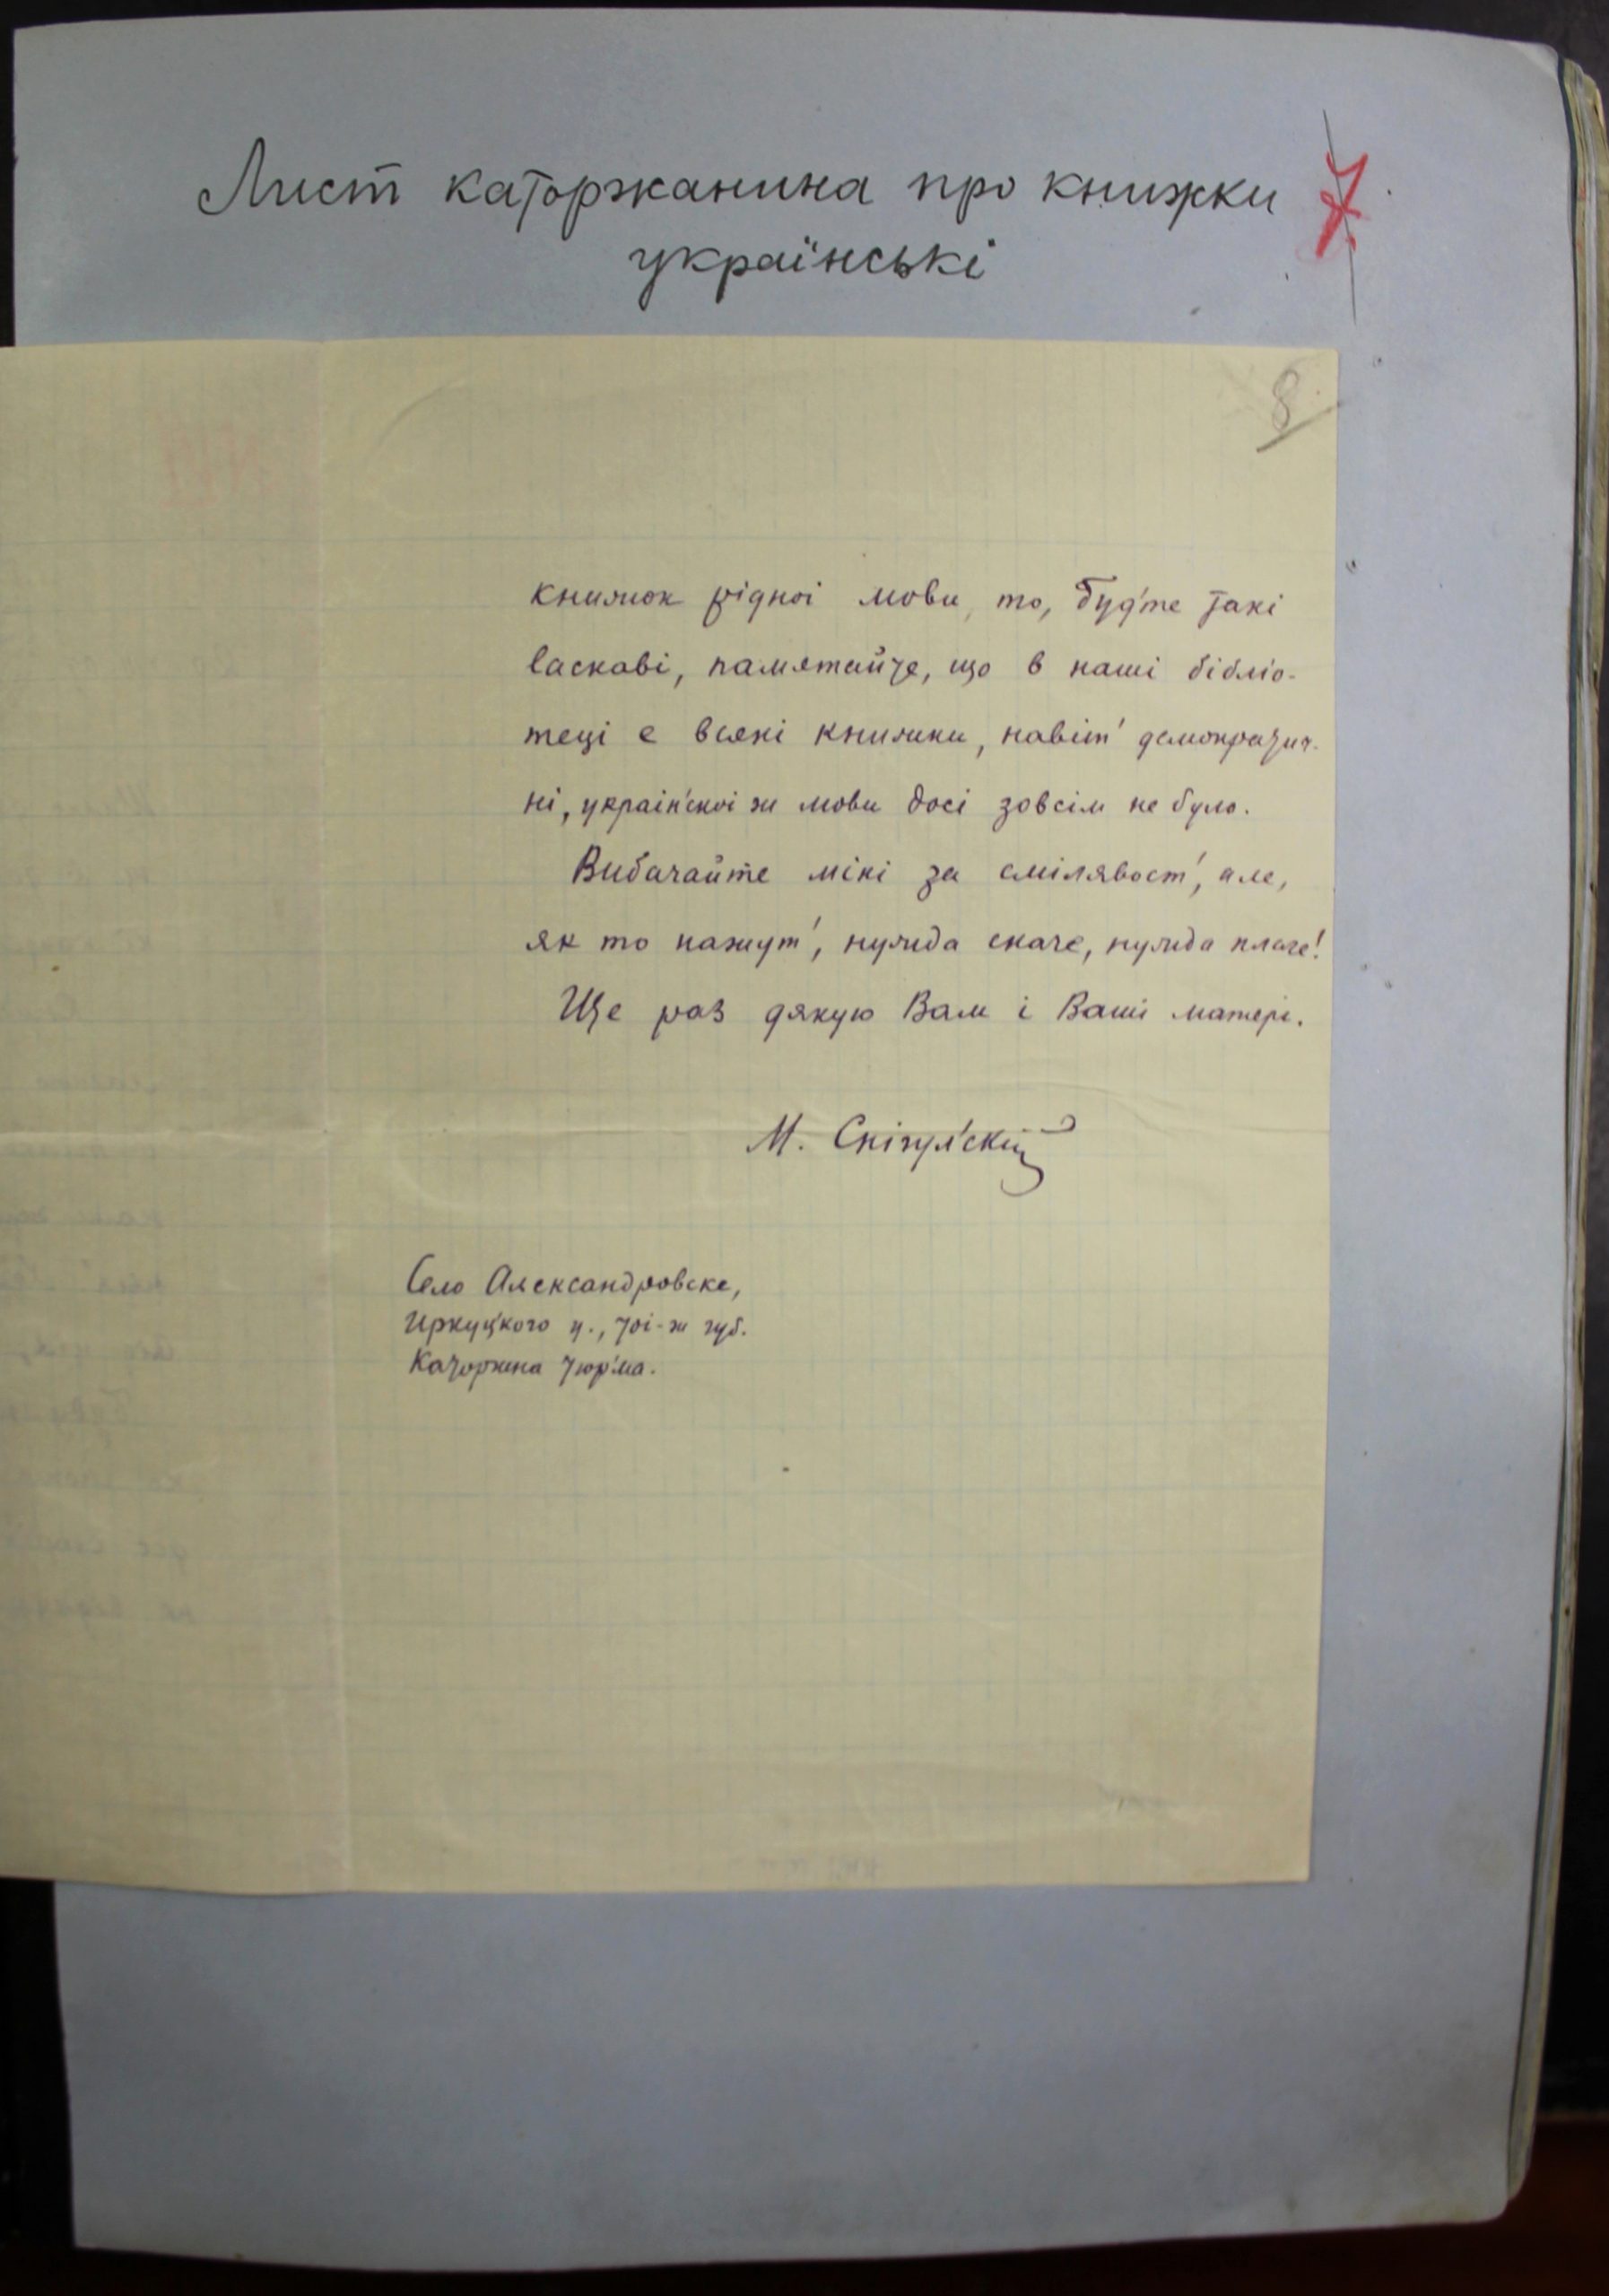 Лист каторжанина про книжки
українські
7
8
книжок рідноі мови, то, буд'те такі
ласкаві, памятайте, що в наші бібліо-
теці є всякі книжки, навіт' демократич-
ні, украін'скоі ж мови досі зовсім не було.
Вибачайте міні за смілявост', але,
як то кажут', нужда скаче, нужда плаче!
Ще раз дякую Вам і Ваші матері.
М.
Село Александровске,
Иркуцького у., тоі-ж губ.
Каторжна тюр'ма.